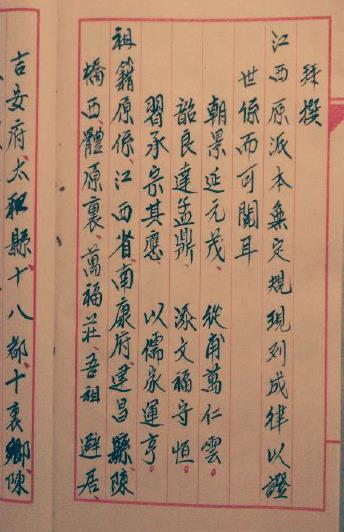 拜撰
江西原派本無定規現列成律以證
世係而可閱耳
朝景延元茂、從甫萬仁雲。
韶良達孟鼎、添文福守恒。
習承宗其應、以儒家運亨。
祖籍原係、江西省、南康府、建昌縣、陳
橋西、體原裏、萬福莊、吾祖避居
吉安府、太和縣、十八都、十裏鄉、陳